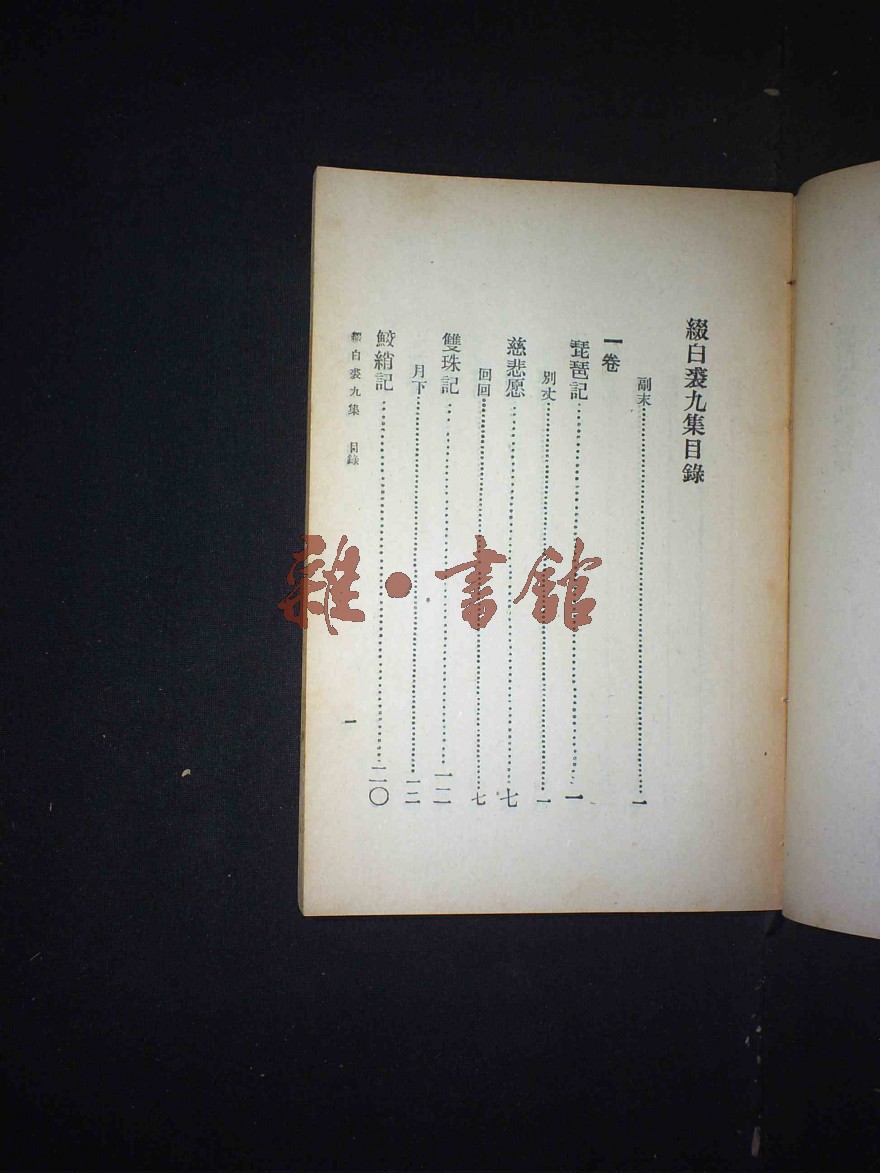 綴白裘九集目錄
副末……一
一卷
琵琶記……一
別丈……一
慈悲愿……七
回回……七
雙珠記……一二
月下……一二
鮫綃記……二〇
綴白裘九集 目錄
一
雜·書館